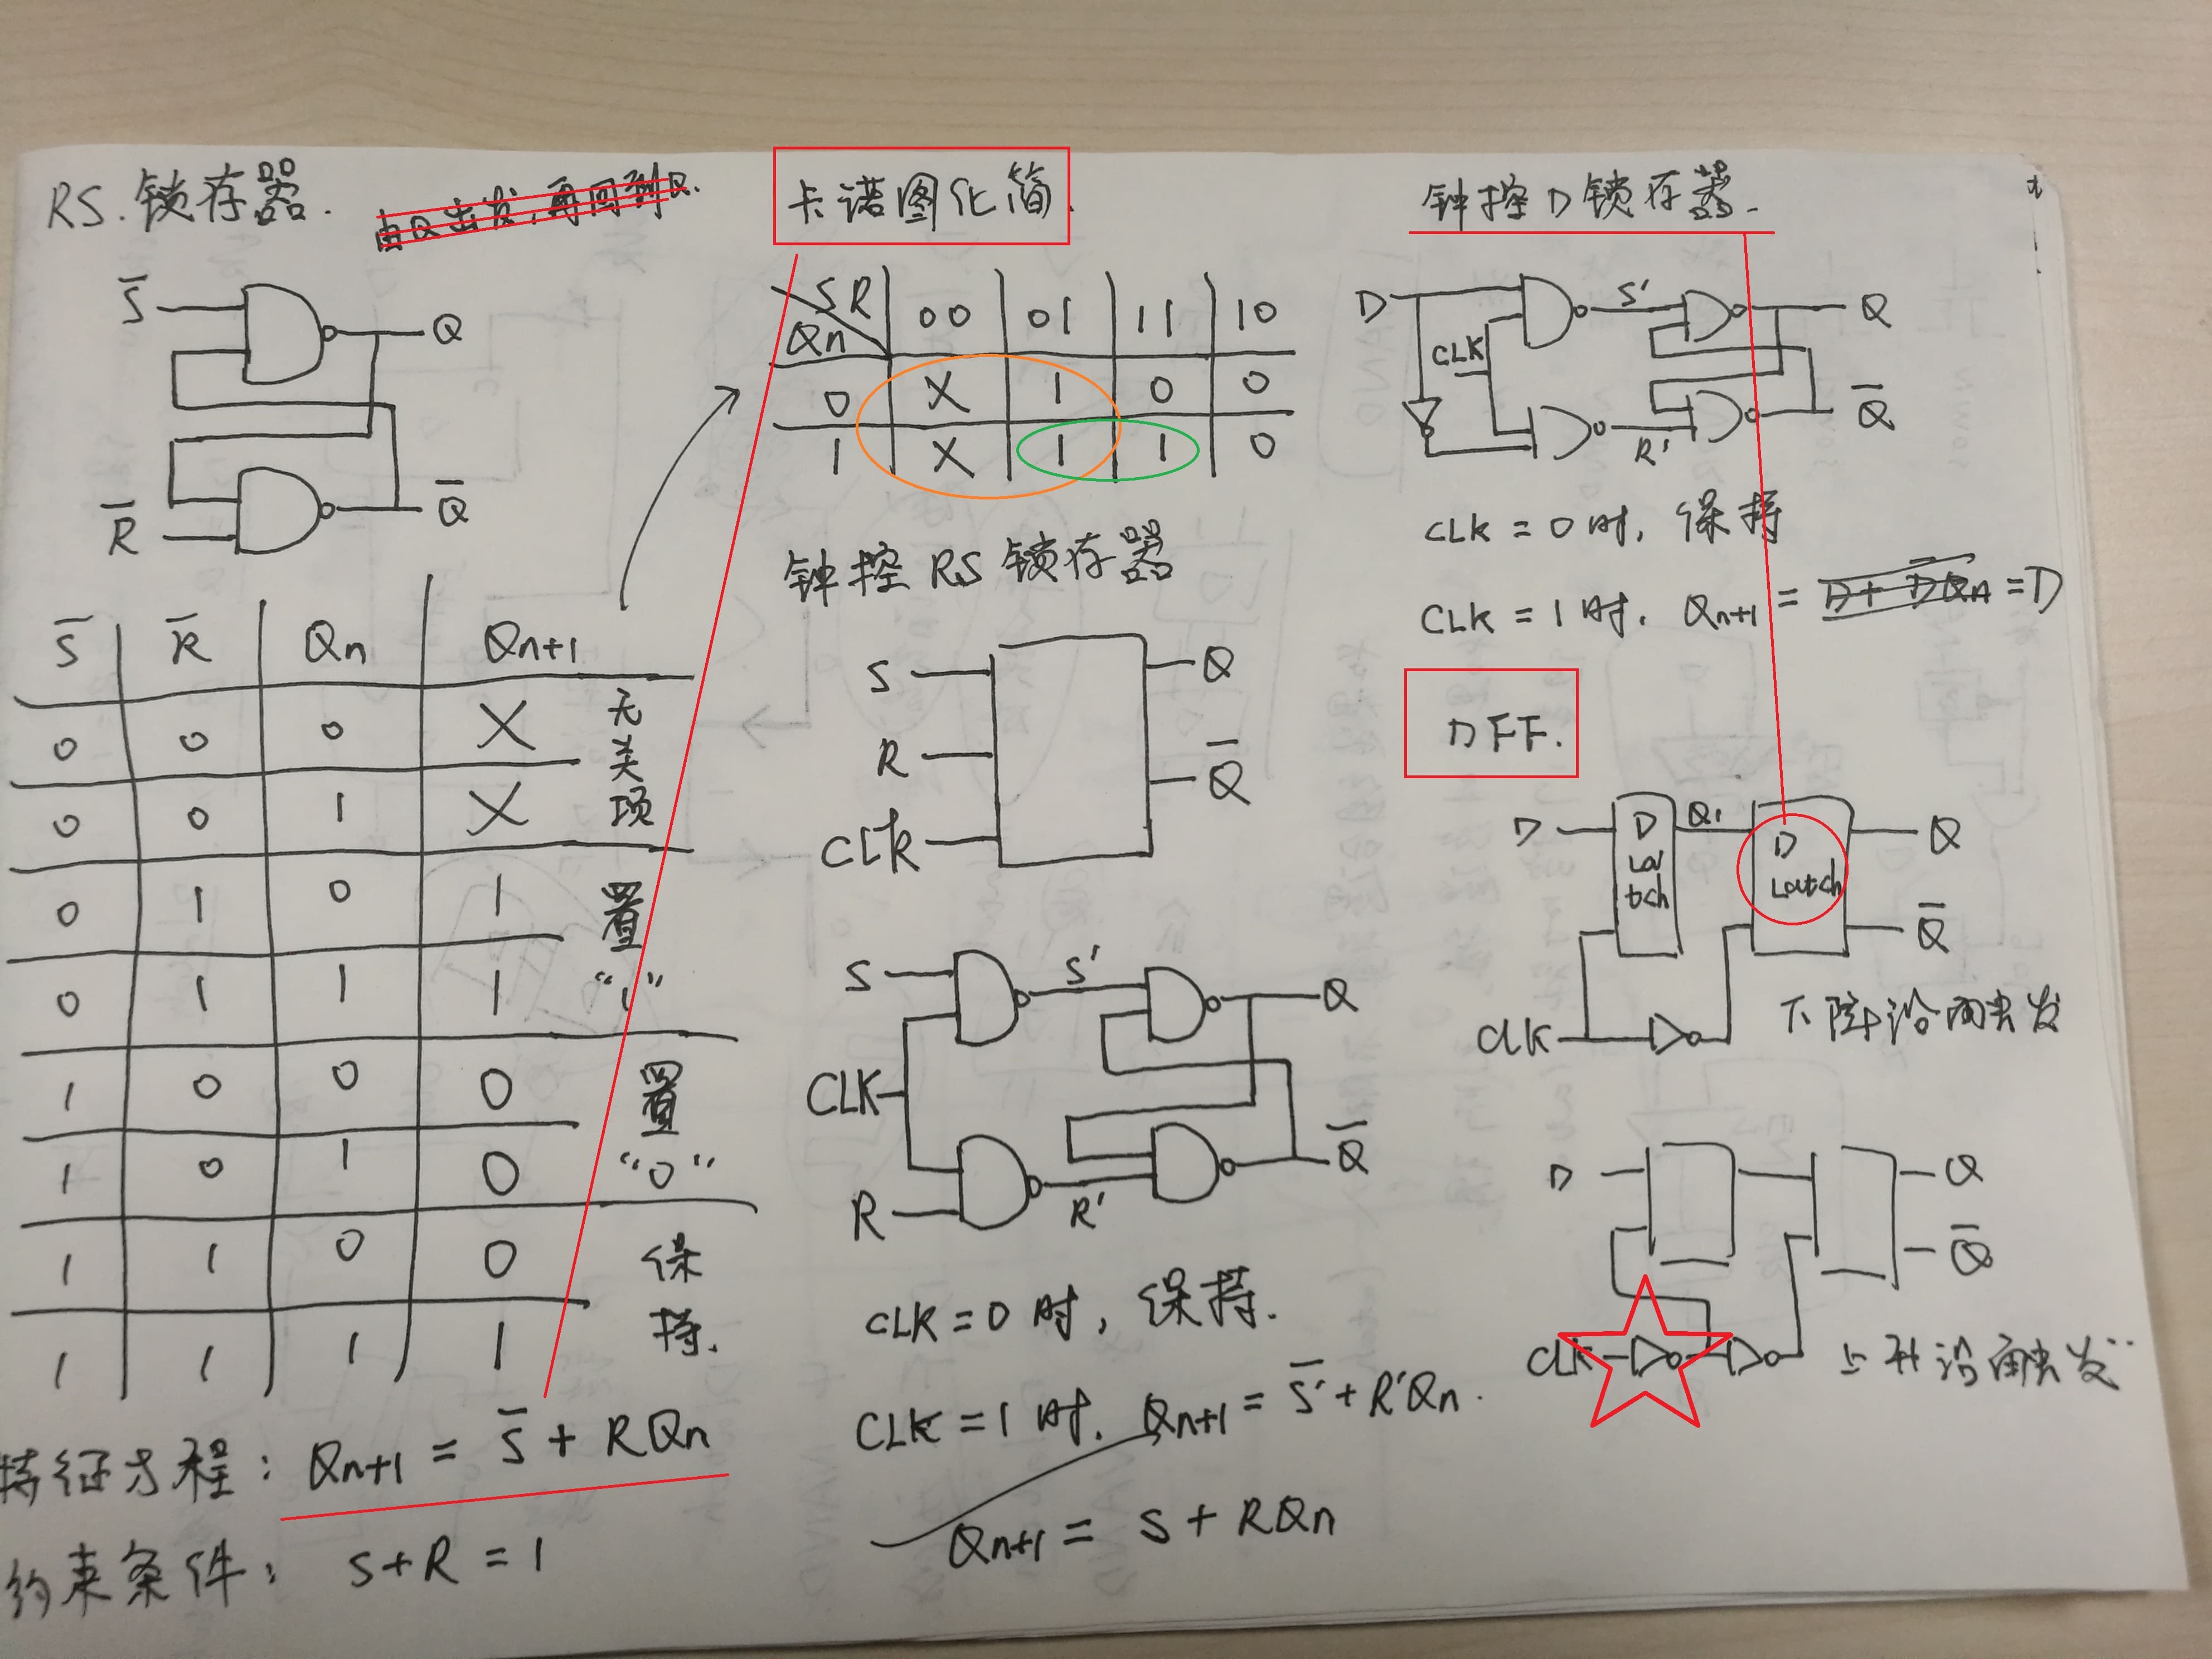 RS.锁存器.
由Q出发,再回到Q.
S̅
Q
R̅
Q̅
S̅ R̅ Qn Qn+1
0 0 0 X 无
0 0 1 X 关项
0 1 0 1 置
0 1 1 1 “1”
1 0 0 0 置
1 0 1 0 “0”
1 1 0 0 保
1 1 1 1 持.
特征方程: Qn+1 = S̅ + RQn
约束条件: S+R = 1
卡诺图化简.
SR 00 01 11 10
Qn
0 X 1 0 0
1 X 1 1 0
钟控RS锁存器
S Q
R Q̅
CLK
S S' Q
CLK
R R' Q̅
CLK = 0 时, 保持.
CLK = 1 时. Qn+1 = S̅' + R'Qn.
Qn+1 = S + RQn
钟控D锁存器.
D S' Q
CLK
R' Q̅
CLK = 0 时, 保持
CLK = 1 时. Qn+1 = D + D̅Qn = D
DFF.
D D Latch Q1 D Latch Q
Q̅
CLK 下降沿触发
D Q
Q̅
CLK 上升沿触发